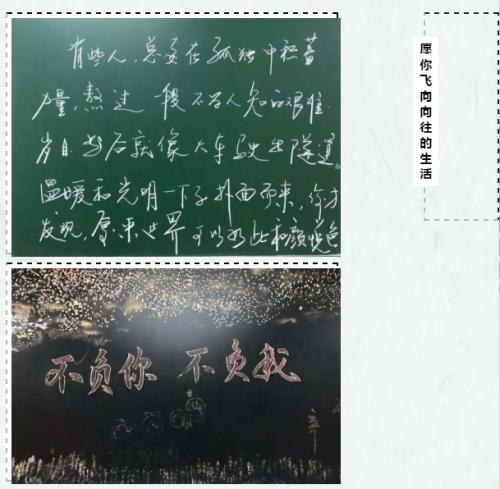 有些人，总要在孤独中积蓄
力量，熬过一段不为人知的艰难
岁月 就像火车驶出隧道，
温暖和光明一下子扑面而来，你才
发现，原来世界可以如此和颜悦色
不负你 不负我
愿你飞向向往的生活